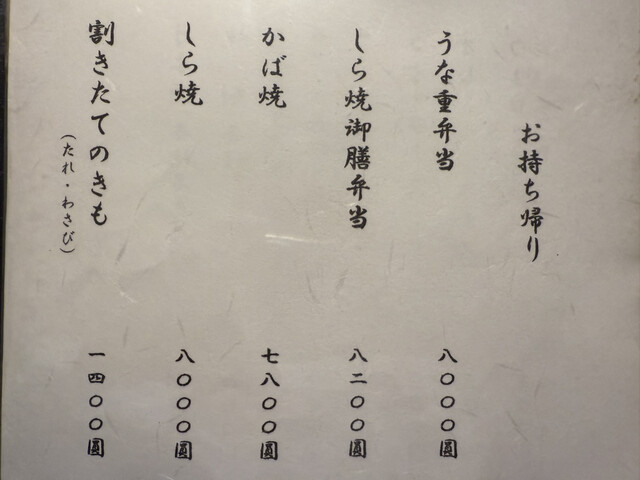 お持ち帰り
うな重弁当 八〇〇〇圓
しら焼御膳弁当 八二〇〇圓
かば焼 七八〇〇圓
しら焼 八〇〇〇圓
割きたてのきも 一四〇〇圓
（たれ・わさび）